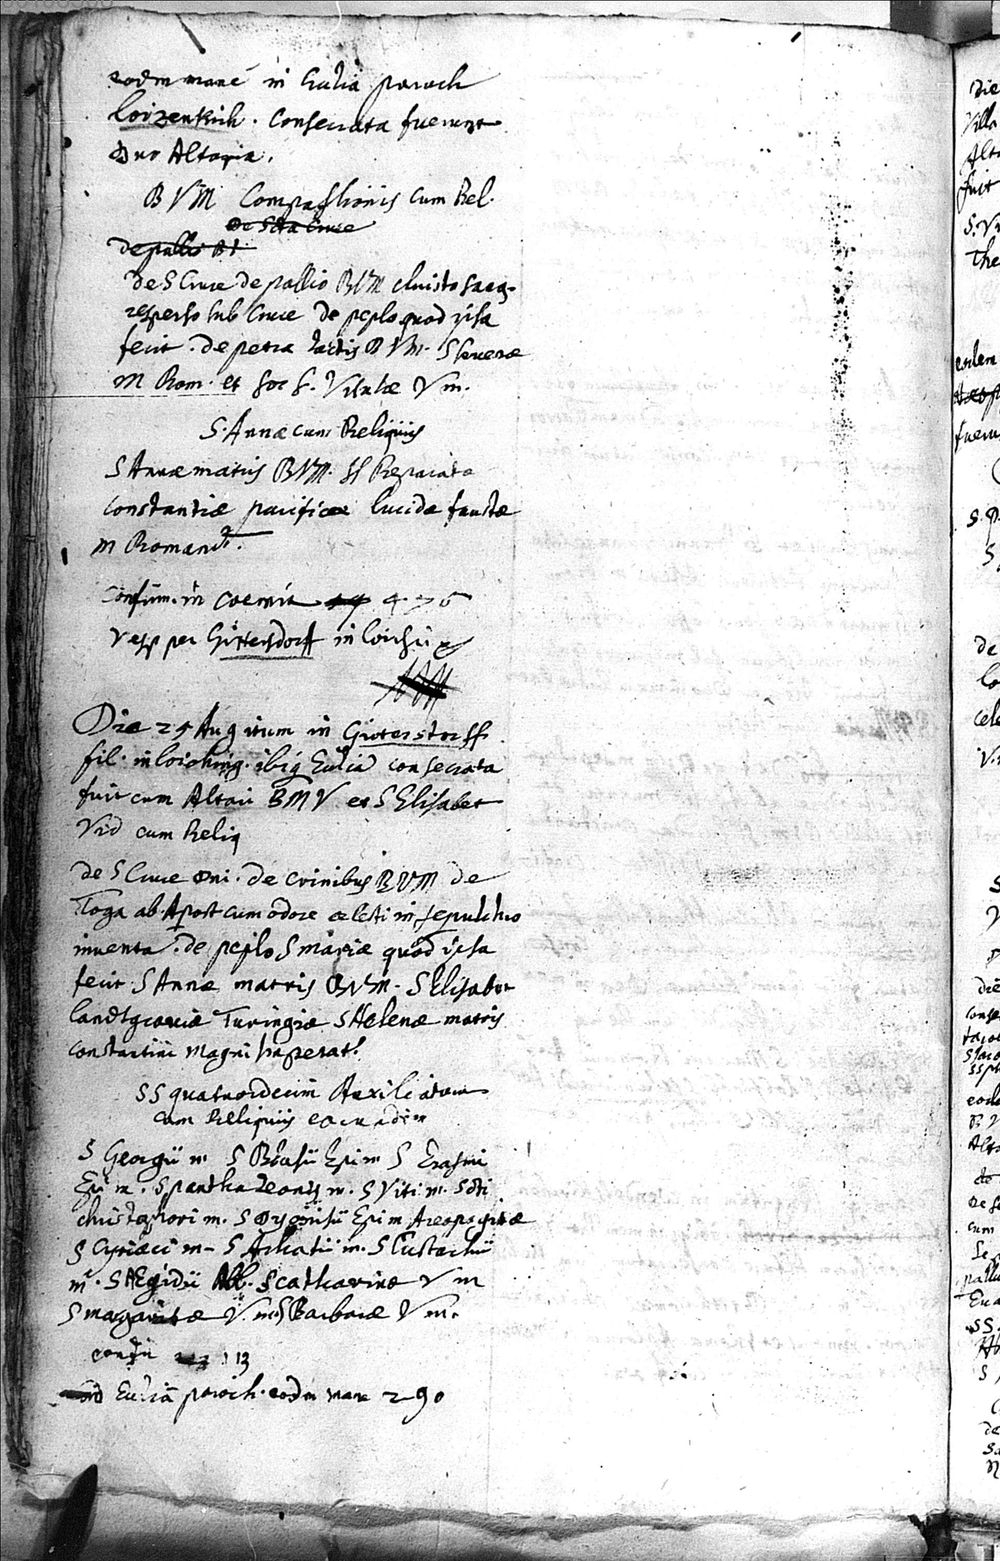 eodm mane in Eccłia paroch
Loizenkirch. Consecrata fuerunt
duo Altaria.
B V M Compassionis cum Rel.
de Scta Cruce
de pallio B V
de S Cruce de pallio B V M christo sang-
resperso sub Cruce de peplo quod ipsa
fecit. de petra lactis B V M. S Severae
m Rom. et Soc S. Ursulae V m.
S. Annae cum Reliquiis
S Annae matris B V M. SS Reparata
Constantiae pacificae lucidae faustae
m Roman.
Confirm. in Coemit 476
Vesp per Gittersdorff in loiching
Die 25 Aug iterum in Gitterstorff
fil. in loiching. ibiq Eccłia consecrata
fuit cum Altari B M V et S Elisabet
Vid cum Reliq
de S Cruce Dni. de crinibus B V M de
Toga ab Apost cum odore caelesti in sepulchro
inventa. de peplo S mariae quod ipsa
fecit S Annae matris B V M. S Elisabet
landtgraviae Turingiae S Helenae matris
Constantini Magni Imperat.
SS quatuordecim Auxiliatorum
cum Reliquiis eorundem
S Georgii m S Blasii Epi m S Erasmi
Epi m. S panthaleonis m. S Viti m. Scti
christophori m. S Dyonisii Epi m Areopagitae
S Cyriaci m- S Achatii m. S Eustachii
m. S Aegidii Abb. S catharinae V m
S margaritae V. m S Barbarae V m.
confir 113
Eccłia paroch. eodm mane 290
Die
Villa
Alta
fuit
S. V
The
eodem
fueru
S. P
S
de
lo
cele
V.
S
V
die
conse
eode
B V
Alta
de
de S
cum
pallio
SS.
S
de